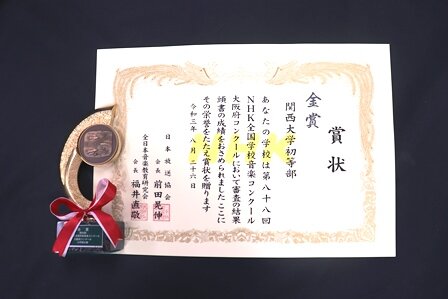 賞状
金賞
関西大学初等部
あなたの学校は第八十八回
NHK全国学校音楽コンクール
大阪府コンクールにおいて審査の結果
頭書の成績をおさめられました ここに
その栄誉をたたえ賞状を贈ります
令和三年八月二十六日
日本放送協会
会長 前田晃伸
全日本音楽教育研究会
会長 福井直敬